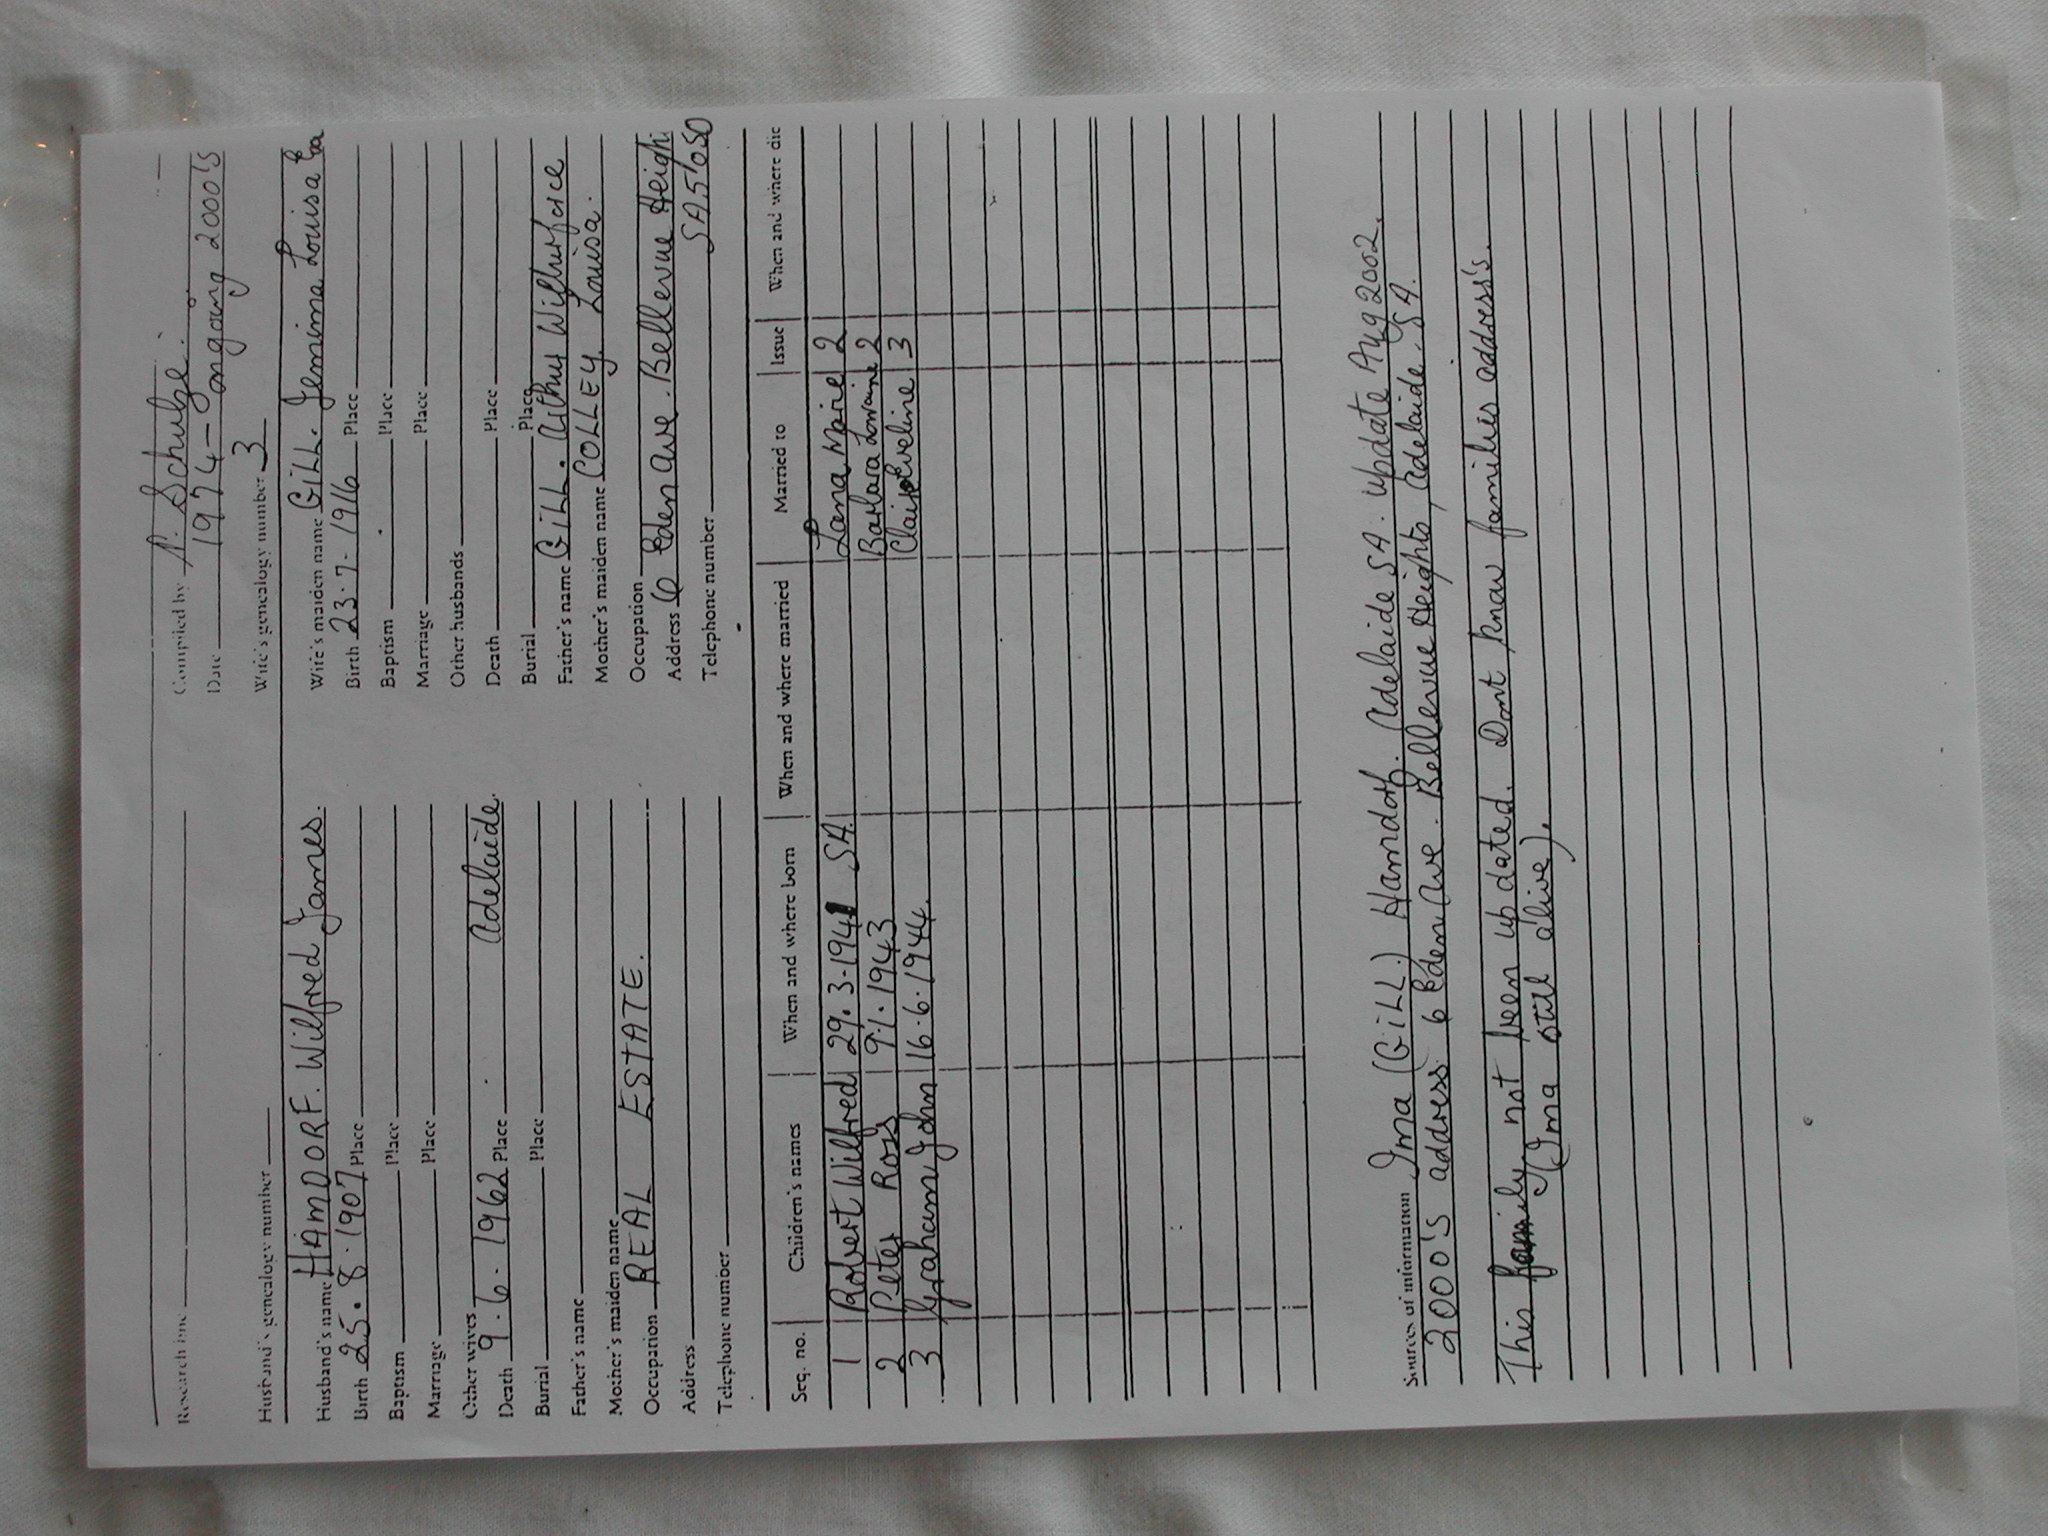 Research line
Compiled by P. Schulze.
Date 1974 - ongoing 2000's
Husband's genealogy number
Wife's genealogy number 3
Husband's name HAMDORF. Wilfred James.
Birth 25.8.1907 Place
Baptism Place
Marriage Place
Other wives
Death 9.6.1962 Place Adelaide.
Burial Place
Father's name
Mother's maiden name
Occupation REAL ESTATE.
Address
Telephone number
Wife's maiden name GILL. Jemima Louisa
Birth 23.7.1916 Place
Baptism Place
Marriage Place
Other husbands
Death Place
Burial Place
Father's name GILL. Arthur Wilberforce
Mother's maiden name COLLEY. Louisa.
Occupation
Address 6 Eden Ave. Bellevue Heigh
SA 5050
Telephone number
Seq. no. Children's names When and where born When and where married Married to Issue When and where die
1 Robert Wilfred 29.3.1941 SA. Lorna Marie 2
2 Peter Ross 9.1.1943 Barbara Lorraine 2
3 Graham John 16.6.1944. Claire Eveline 3
Sources of information Ima (GILL) Hamdorf. Adelaide SA. update Aug 2002.
2000's address 6 Eden Ave. Bellevue Heights, Adelaide. SA.
This family not been up dated. Dont know families address's.
(Ima still alive).